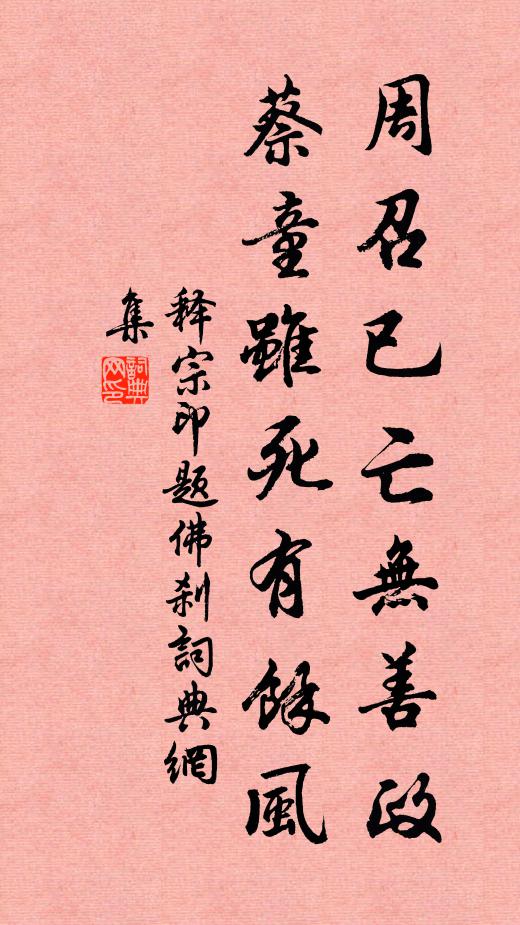 周召已亡無善政
蔡童雖死有餘風
释宗印題佛刹詞典網
集
詞典
网印